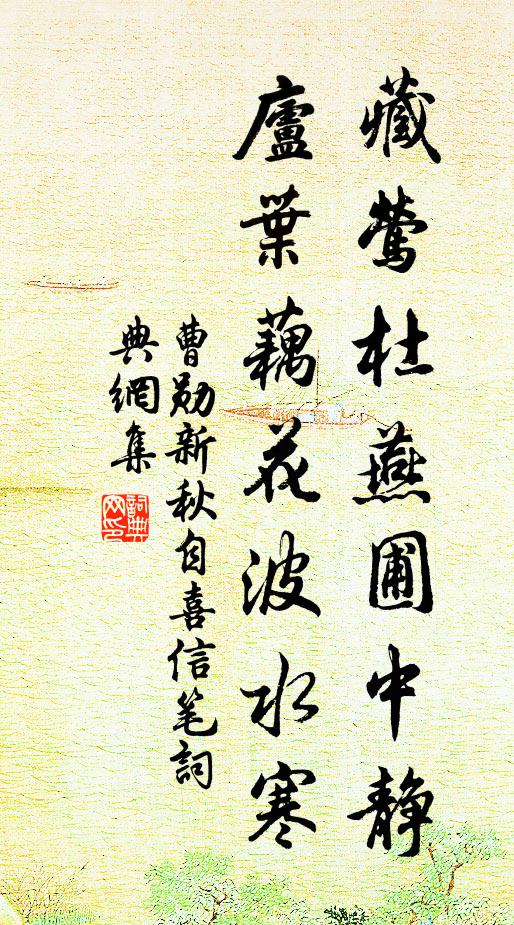 藏鶯杜燕圃中静
廬葉藕花波水寒
曹勛新秋自喜信笔詞
典網集
詞典
网印